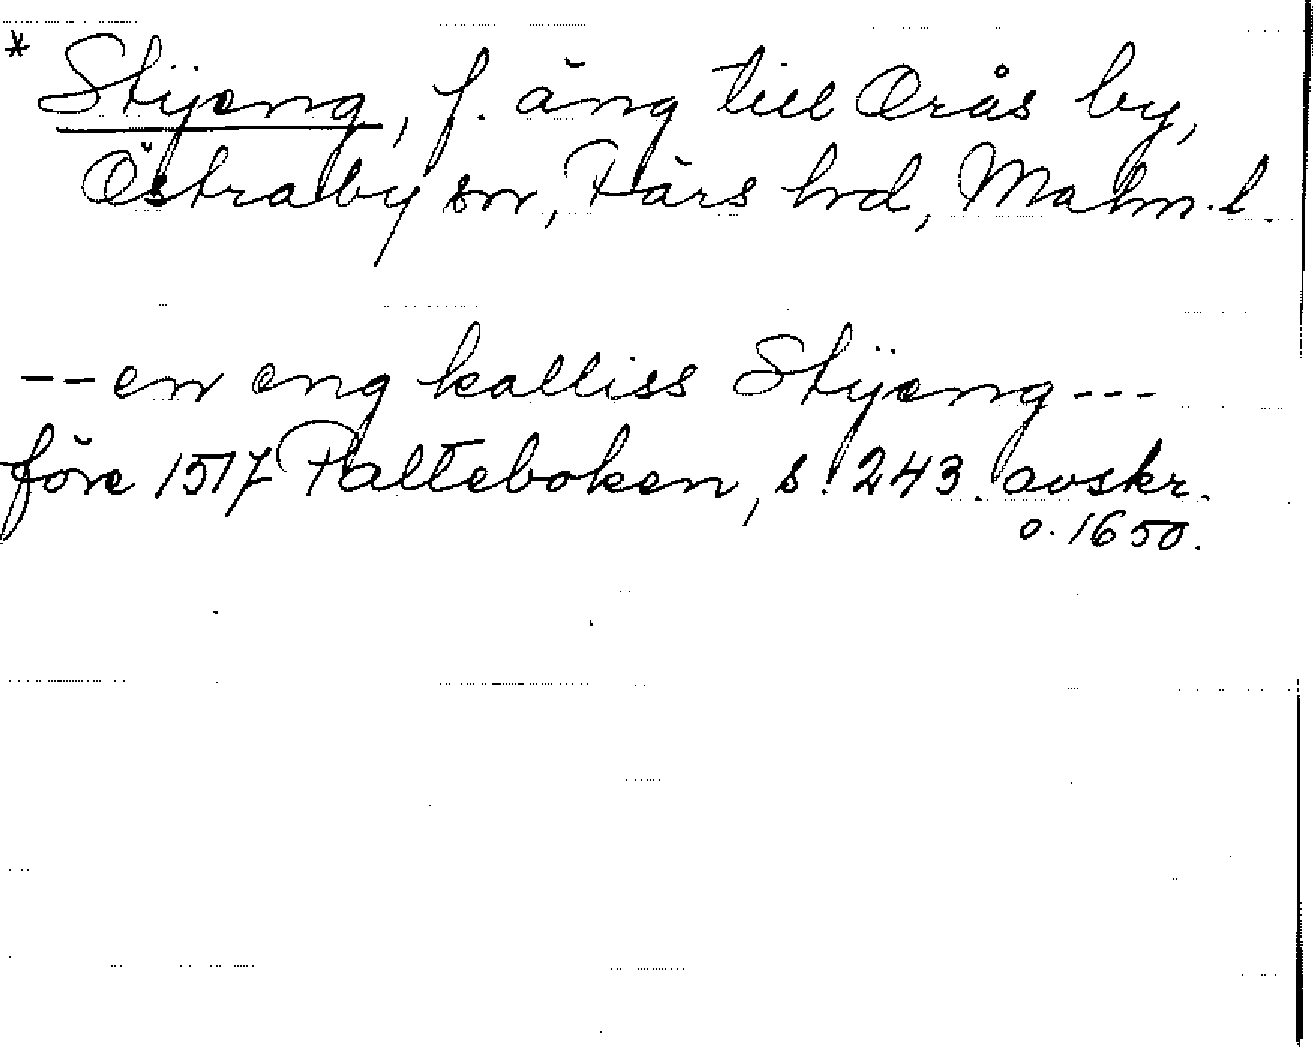 * Stÿeng, f. äng till Orås by,
Östraby sn, Färs hrd, Malm. l.
-- en eng kalliss Stÿeng ---
före 1517 Palteboken, s. 243. avskr.
o. 1650.